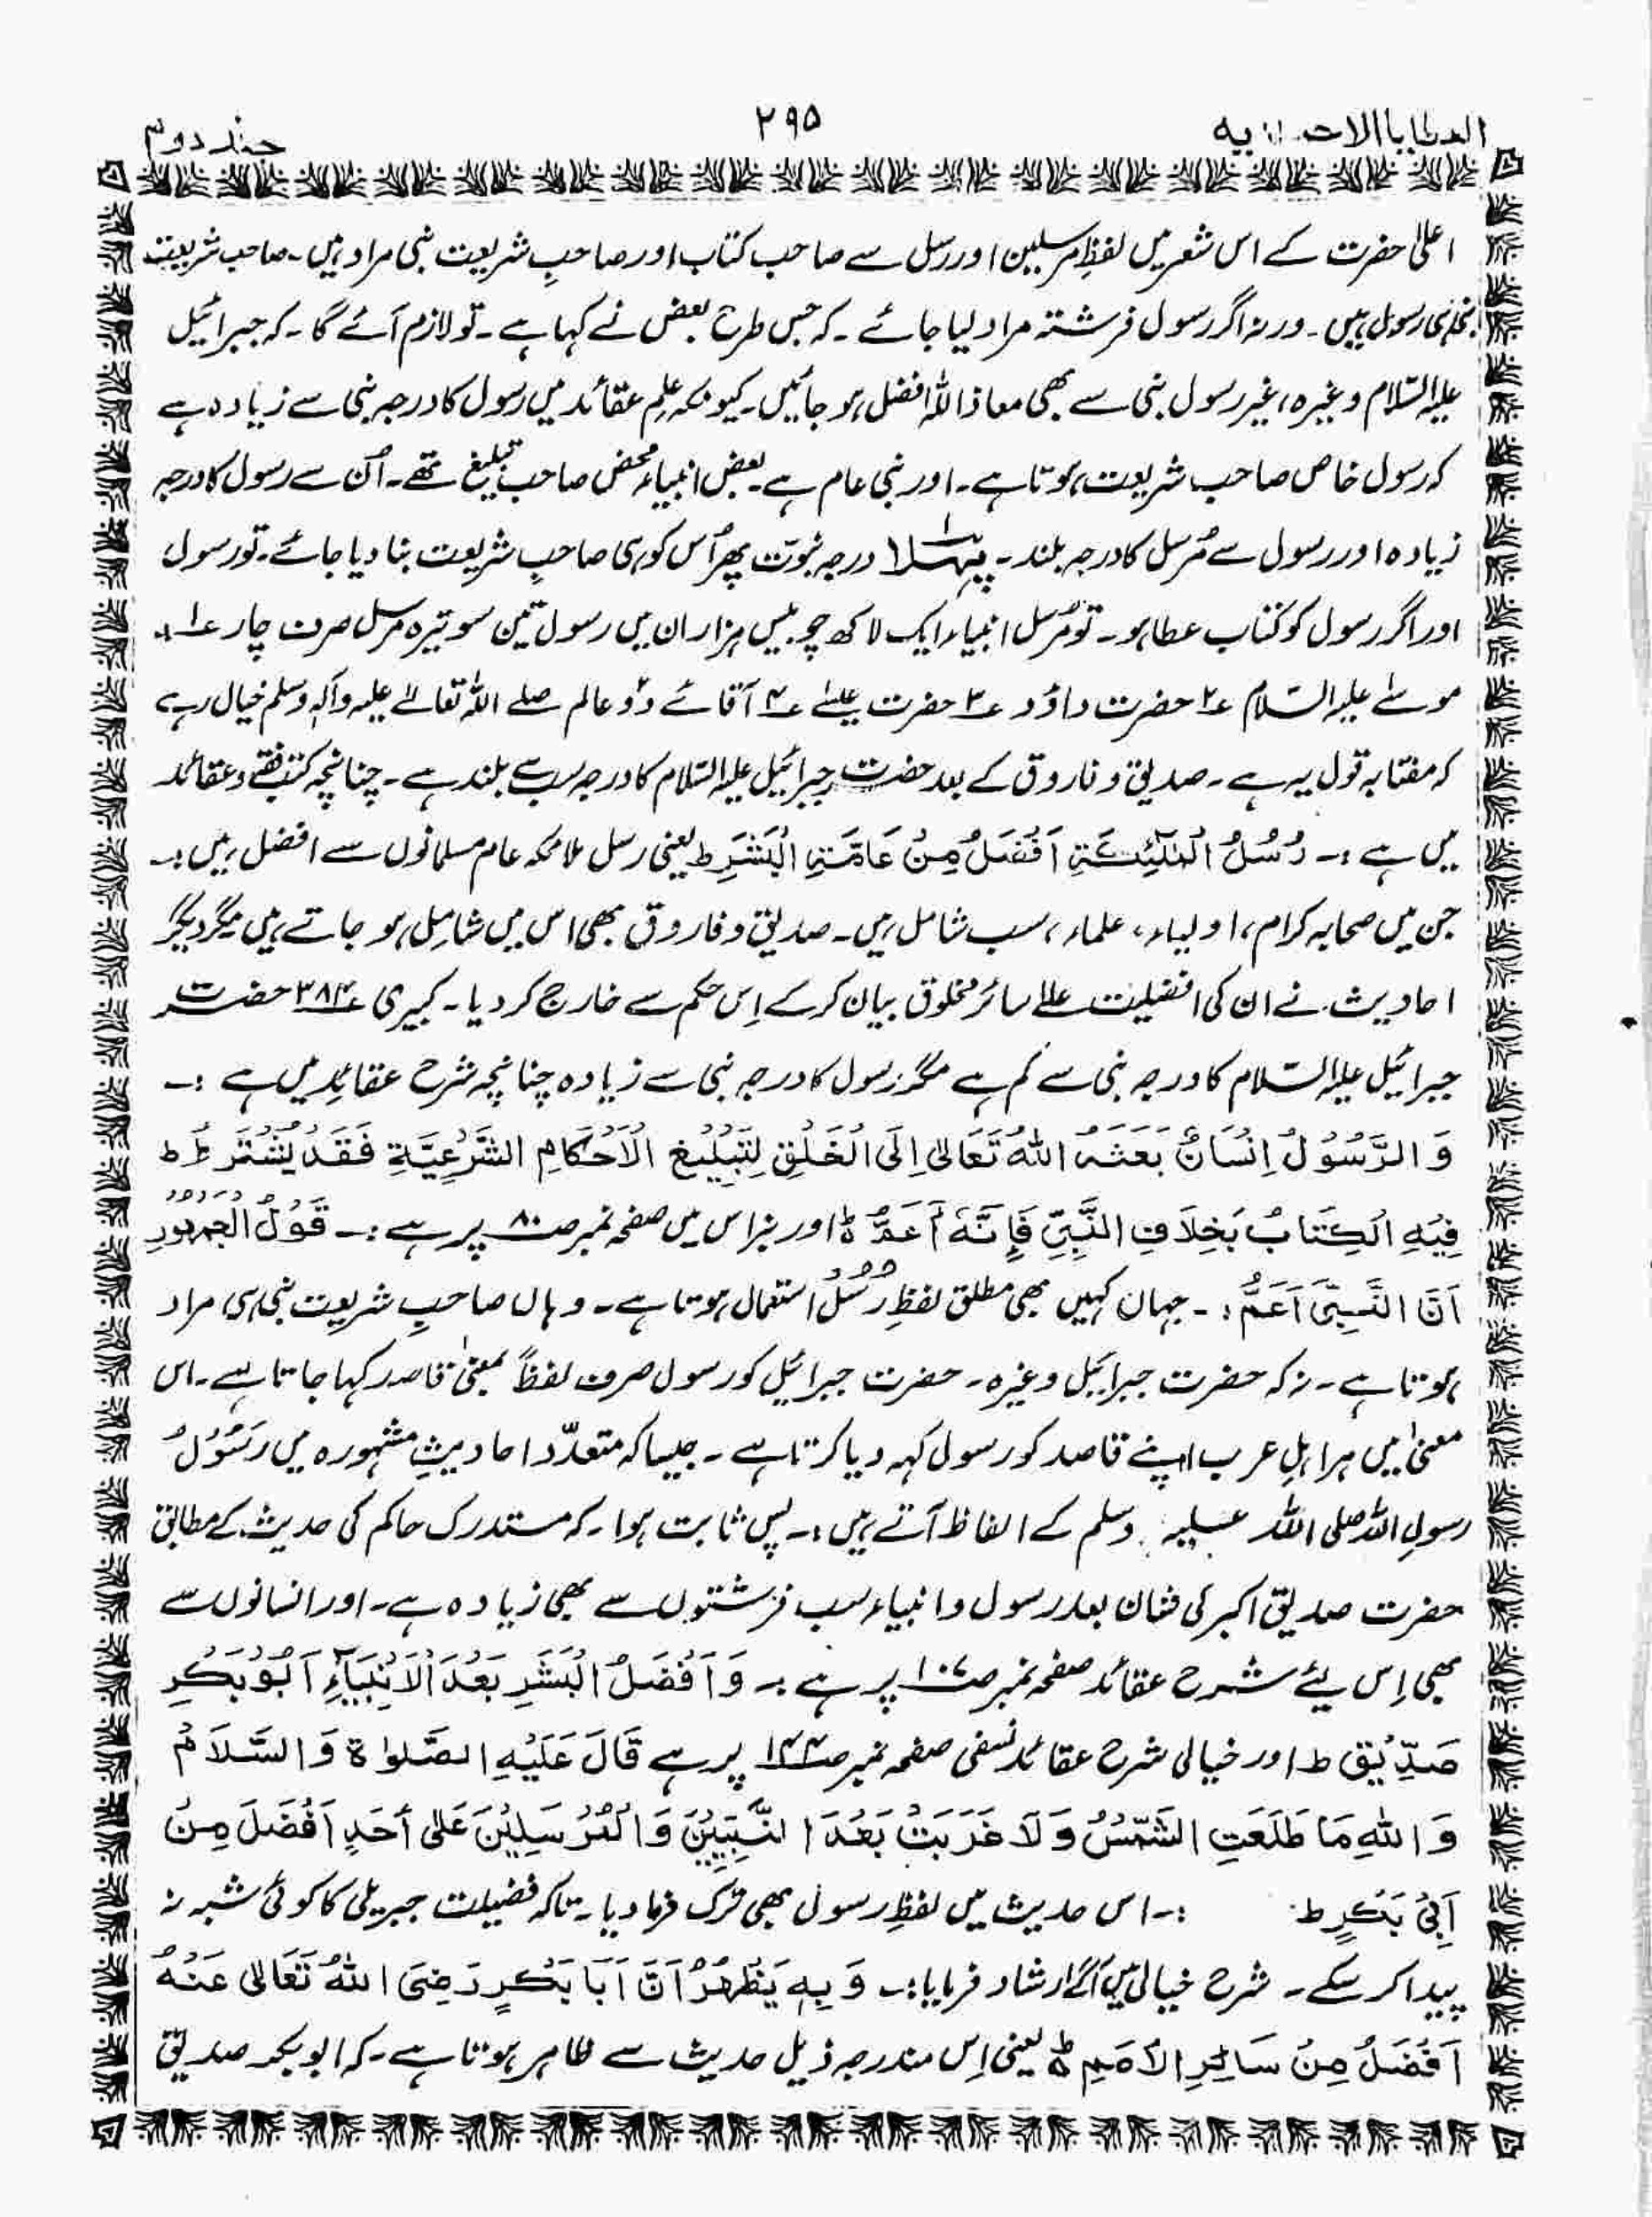 ۲۹۵
جلد دوم
اعلیٰ حضرت کے اس شعر میں لفظِ مرسلین اور رسل سے صاحب کتاب اور صاحبِ شریعت نبی مراد ہیں ۔ صاحب شریعت
نبی ہی رسول ہیں ۔ ورنہ اگر رسول فرشتہ مراد لیا جائے ۔ کہ جس طرح بعض نے کہا ہے ۔ تو لازم آئے گا ۔ کہ جبرائیل
علیہ السّلام وغیرہ ، غیر رسول نبی سے بھی معاذ اللہ افضل ہو جائیں ۔ کیونکہ علمِ عقائد میں رسول کا درجہ نبی سے زیادہ ہے
کہ رسول خاص صاحب شریعت ہوتا ہے ۔ اور نبی عام ہے ۔ بعض انبیاء محض صاحب تبلیغ تھے ۔ اُن سے رسول کا درجہ
زیادہ اور رسول سے مُرسل کا درجہ بلند ۔ پہلا درجہ نبوّت پھر اُس کو ہی صاحبِ شریعت بنا دیا جائے ۔ تو رسول
اور اگر رسول کو کتاب عطا ہو ۔ تو مُرسل انبیاء ایک لاکھ چوبیس ہزار ان میں رسول تین سو تیرہ مرسل صرف چار ۱؎
موسےٰ علیہ السّلام ۲؎ حضرت داؤد ۳؎ حضرت عیسےٰ ۴؎ آقائے دو عالم صلے اللہ تعالےٰ علیہ وآلہٖ وسلم خیال رہے
کہ مفتابہ قول یہ ہے ۔ صدیق و فاروق کے بعد حضرت جبرائیل علیہ السّلام کا درجہ سب سے بلند ہے ۔ چنانچہ کتب فقہ و عقائد
میں ہے :۔ رُسُلُ الْمَلٰٓئِكَةِ اَفْضَلُ مِنْ عَامَّةِ الْبَشَرِ ط یعنی رسل ملائکہ عام مسلمانوں سے افضل ہیں :۔
جن میں صحابہ کرام ، اولیاء ، علماء ، سب شامل ہیں ۔ صدیق و فاروق بھی اس میں شامِل ہو جاتے ہیں مگر دیگر
احادیث نے ان کی افضلیت علےٰ سائر مخلوق بیان کر کے اِس حکم سے خارج کر دیا ۔ کبیری ۳۸۴ حضرت
جبرائیل علیہ السّلام کا درجہ نبی سے کم ہے مگر رسول کا درجہ نبی سے زیادہ چنانچہ شرح عقائد میں ہے :۔
وَ الرَّسُوْلُ اِنْسَانٌ بَعَثَهُ اللهُ تَعَالىٰ اِلَى الْخَلْقِ لِتَبْلِيْغِ الْاَحْكَامِ الشَّرْعِيَّةِ فَقَدْ يُشْتَرَطُ ط
فِيْهِ الْكِتَابُ بَخِلَافِ النَّبِيِّ فَاِنَّهٗ اَعَمُّ ط اور نبراس میں صفحہ نمبر ص۸۰ پر ہے :۔ قَوْلُ الْجمهُوْرِ
اَنَّ النَّبِيَّ اَعَمُّ :۔ جہان کہیں بھی مطلق لفظِ رُسُلُ استعمال ہوتا ہے ۔ وہاں صاحبِ شریعت نبی ہی مراد
ہوتا ہے ۔ نہ کہ حضرت جبرایئل وغیرہ ۔ حضرت جبرائیل کو رسول صرف لفظاً بمعنیٰ قاصد کہا جاتا ہے ۔ اس
معنیٰ میں ہر اہلِ عرب اپنے قاصد کو رسول کہہ دیا کرتا ہے ۔ جیسا کہ متعدّد احادیثِ مشہورہ میں رَسُوْلُ
رسولِ اللہ صلی اللہ علیہ وسلم کے الفاظ آتے ہیں :۔ پس ثابت ہوا ۔ کہ مستدرک حاکم کی حدیث کے مطابق
حضرت صدیق اکبر کی شان بعد رسول و انبیاء سب فرشتوں سے بھی زیادہ ہے ۔ اور انسانوں سے
بھی اِس لئے شرح عقائد صفحہ نمبر ص۱۰۷ پر ہے :۔ وَ اَفْضَلُ الْبَشَرِ بَعْدَ الْاَنْبِيَآءِ اَبُوْ بَكْرِ
صَدِّيْق ط اور خیالی شرح عقائد نسفی صفحہ نمبر پر ہے قَالَ عَلَيْهِ الصَّلوٰة وَ السَّلَامُ
وَ اللهِ مَا طَلَعَتِ الشَّمْسُ وَ لَا غَرَبَتْ بَعْدَ النَّبِيِّيْنَ وَ الْمُرْسَلِيْنَ عَلىٰ أَحَدٍ اَفْضَلَ مِنْ
اَبِيْ بَكْرٍ ط :۔ اس حدیث میں لفظِ رسول بھی ترک فرما دیا ۔ تاکہ فضیلت جبریلی کا کوئی شبہ نہ
پیدا کر سکے ۔ شرح خیالی میں آگے ارشاد فرمایا :۔ وَ بِهٖ يَظْهَرُ اَنَّ اَبَا بَكْرٍ رَضِىَ اللهُ تَعَالىٰ عَنْهُ
اَفْضَلُ مِنْ سَائِرِ الْاُمَمِ ط یعنی اِس مندرجہ ذیل حدیث سے ظاہر ہوتا ہے ۔ کہ ابوبکر صدیق